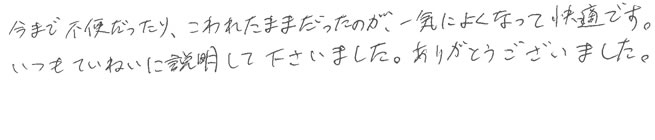 今まで不便だったり、こわれたままだったのが、一気によくなって快適です。
いつもていねいに説明して下さいました。ありがとうございました。